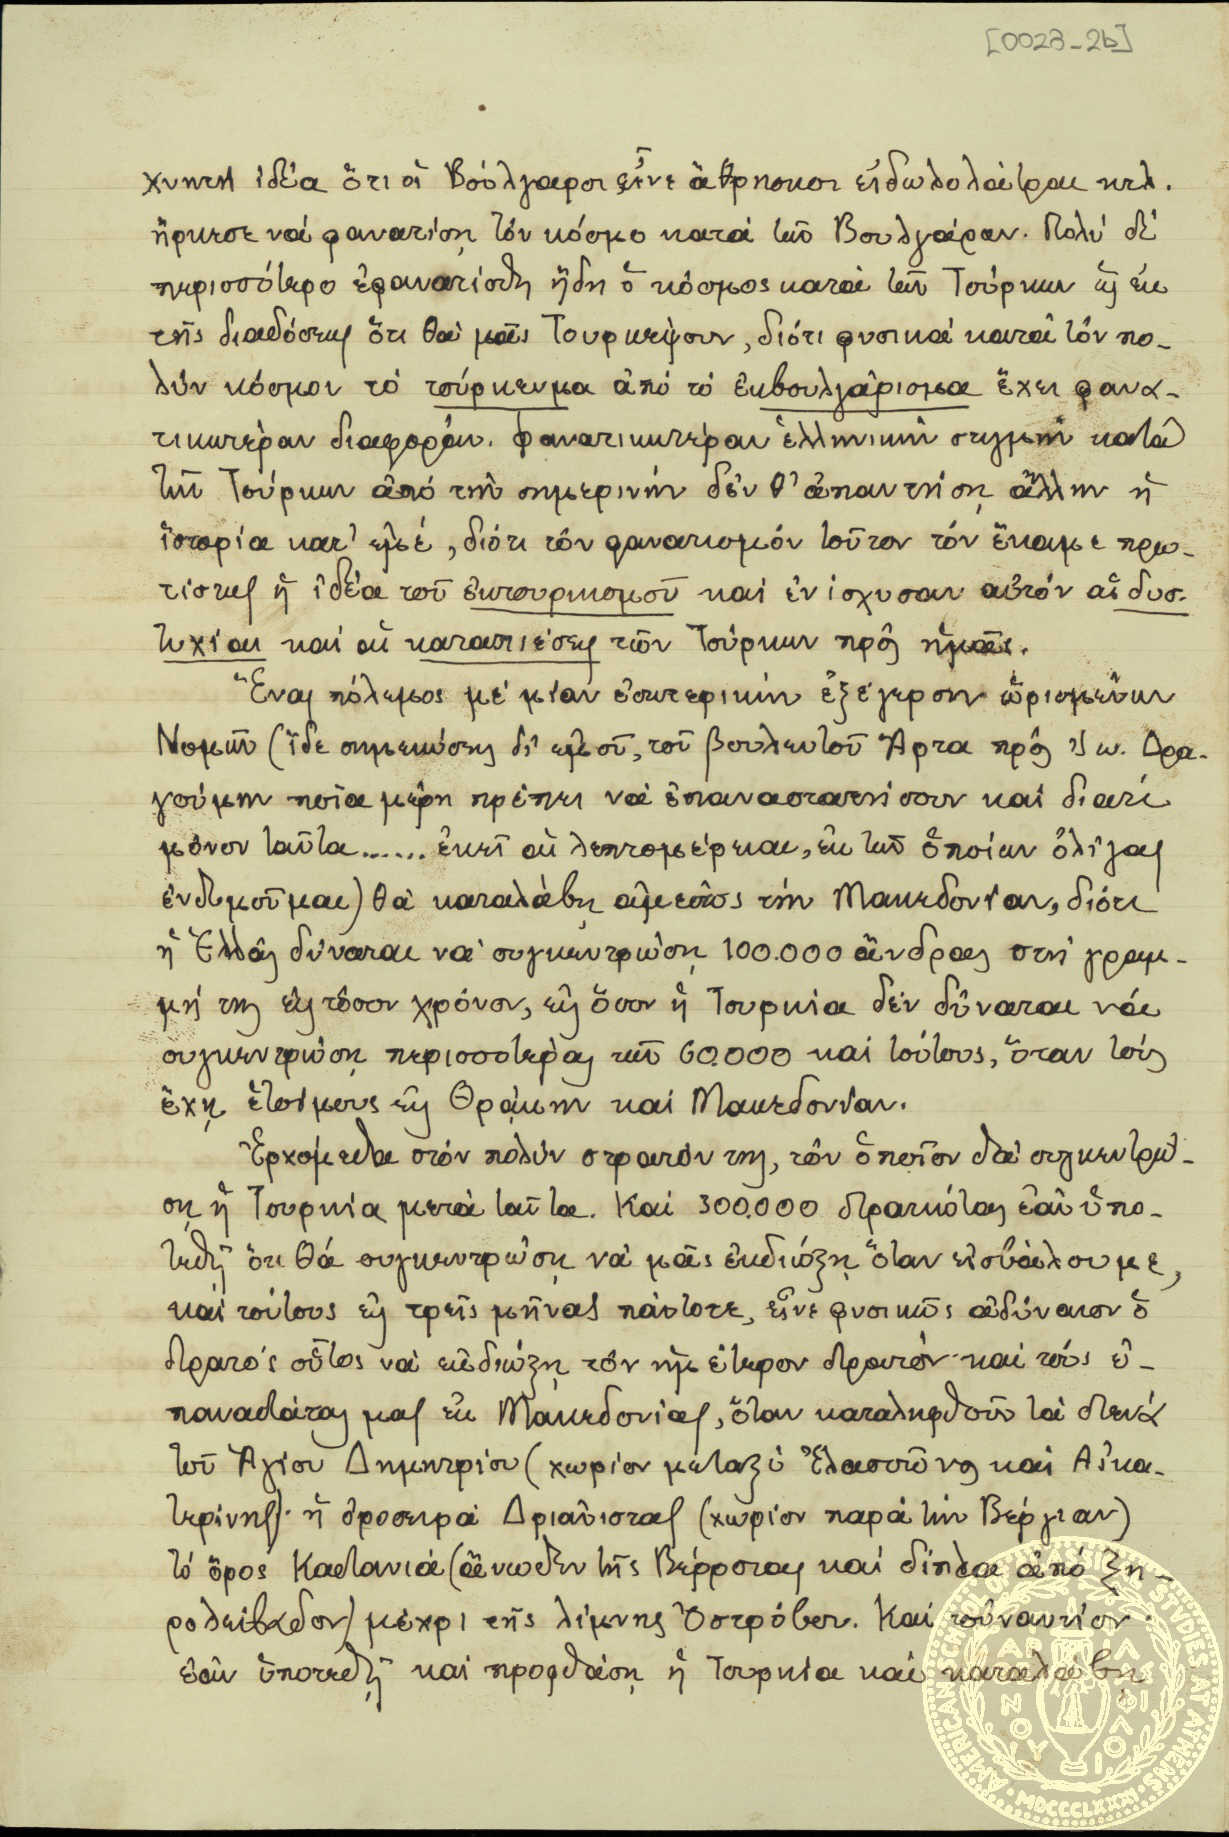 [0023_2b]
χυτή ἰδέα ὅτι οἱ Βούλγαροι εἶνε ἄθρησκοι εἰδωλολάτραι κτλ.
ἤρκεσε νά φανατίσῃ τόν κόσμο κατά τῶν Βουλγάρων. Πολύ δέ
περισσότερο ἐφανατίσθη ἤδη ὁ κόσμος κατά τῶν Τούρκων ὡς ἐκ
τῆς διαδόσεως ὅτι θά μᾶς Τουρκεψουν, διότι φυσικά κατά τόν πο-
λύν κόσμον τό τούρκευμα ἀπό τό ἐκβουλγάρισμα ἔχει φανα-
τικωτέραν διαφοράν. Φανατικωτέραν ἑλληνικήν στιγμήν κατά
τῶν Τούρκων ἀπό τήν σημερινήν δέν θ' ἀπαντήσῃ ἄλλην ἡ
ἱστορία κατ' ἐμέ, διότι τόν φανατισμόν τοῦτον τόν ἔκαμε πρω-
τίστως ἡ ἰδέα τοῦ ἐκτουρκισμοῦ καί ἐνίσχυσαν αὐτόν αἱ δυσ-
τυχίαι καί αἱ καταπιέσεις τῶν Τούρκων πρός ἡμᾶς.
Ἕνας πόλεμος μέ μίαν ἐσωτερικήν ἐξέγερσιν ὡρισμένων
Νομῶν (ἴδε σημειώσεις δι' ἐμοῦ, τοῦ βουλευτοῦ Ἄρτα πρός Ἰω. Δρα-
γούμην ποῖα μέρη πρέπει νά ἐπαναστατήσουν καί διατί
μόνον ταῦτα...... ἐκεῖ αἱ λεπτομέρειαι, ἐκ τῶν ὁποίων ὀλίγας
ἐνθυμοῦμαι) θά καταλάβῃ ἀμέσως τήν Μακεδονίαν, διότι
ἡ Ἑλλάς δύναται νά συγκεντρώσῃ 100.000 ἄνδρας στή γραμ-
μή της εἰς τόσον χρόνον, εἰς ὅσον ἡ Τουρκία δέν δύναται νά
συγκεντρώσῃ περισσοτέρας τῶν 60.000 καί τούτους, ὅταν τούς
ἔχῃ ἑτοίμους εἰς Θράκην καί Μακεδονίαν.
Ἐρχόμεθα στόν πολύν στρατόν της, τόν ὁποῖον θά συγκεντρώ-
σῃ ἡ Τουρκία μετά ταῦτα. Καί 300.000 στρατιώτας ἐάν ὑπο-
τεθῇ ὅτι θά συγκεντρώσῃ νά μᾶς ἐκδιώξῃ ὅταν εἰσβάλουμε,
καί τούτους εἰς τρεῖς μῆνας πάντοτε, εἶνε φυσικῶς ἀδύνατον ὁ
στρατός οὗτος νά ἐκδιώξῃ τόν ἡμέτερον στρατόν καί τούς ἐ-
παναστάτας μας ἐκ Μακεδονίας, ὅταν καταληφθοῦν τά στενά
τοῦ Ἁγίου Δημητρίου (χωρίον μεταξύ Ἐλασσῶνος καί Αἰκα-
τερίνης)· ἡ ὀροσειρά Δριανίστας (χωρίον παρά τήν Βέργιαν)
τό ὄρος Καστανιά (ἄνωθεν τῆς Βερροίας καί δίπλα ἀπό Ξη-
ρολείβαδον) μέχρι τῆς λίμνης Ὀστρόβου. Καί τοὐναντίον
ἐάν ὑποτεθῇ καί προφθάσῃ ἡ Τουρκία καί καταλάβῃ
AMERICAN SCHOOL OF CLASSICAL STUDIES AT ATHENS · MDCCCLXXXI